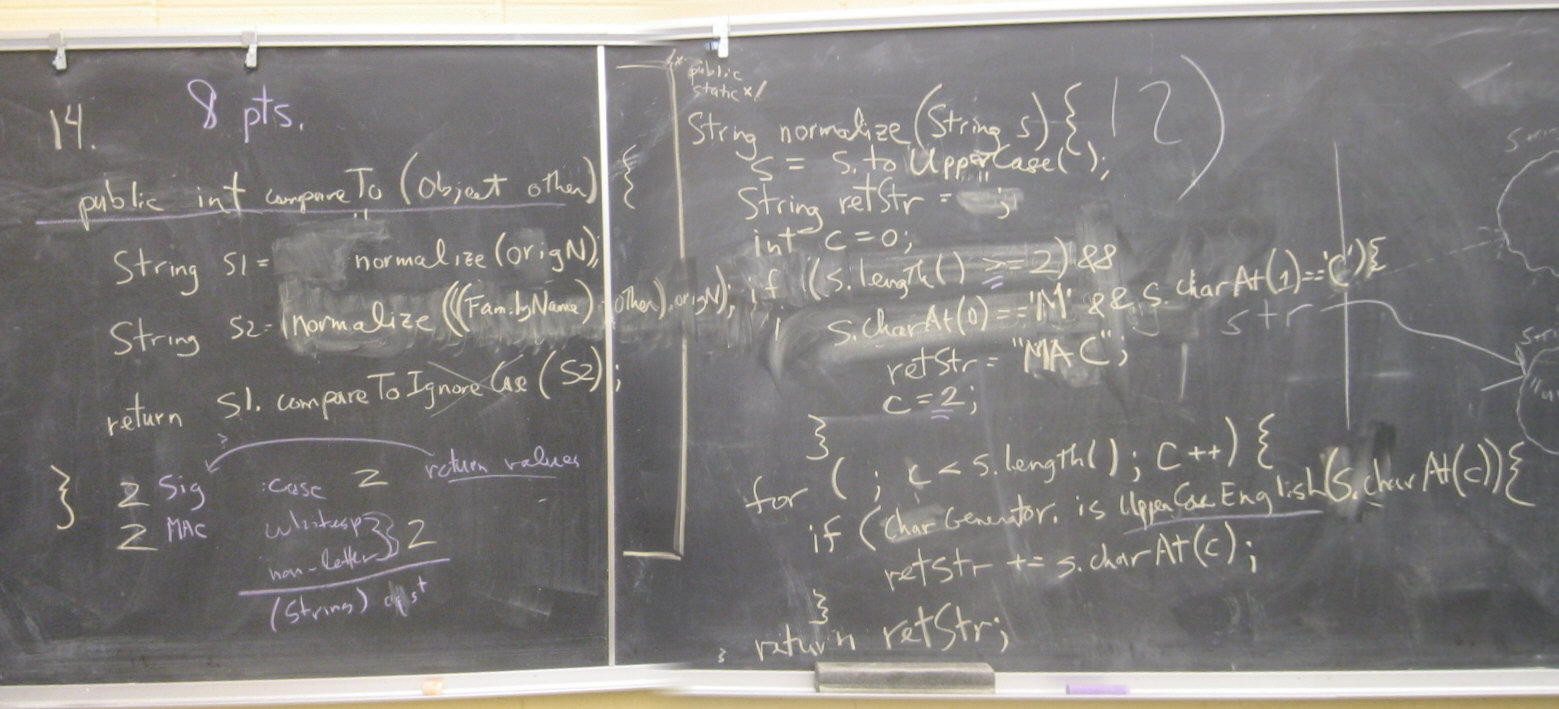 14.
8 pts.
public int compareTo (Object other) {
String S1 = normalize (origN);
String S2 = normalize (((FamilyName) other).origN);
return S1. compareToIgnoreCase (S2);
}
? return values
2 Sig : case 2
2 MAC whitesp
non-letter } 2
(String)
/* public
static */
String normalize (String s) { 12)
s = s.toUpperCase();
String retStr = "";
int c = 0;
if ((s.length() >= 2) &&
s.charAt(0) == 'M' && s.charAt(1) == 'C') {
retStr = "MAC";
c = 2;
}
for ( ; c < s.length(); c++) {
if (CharGenerator.isUpperCaseEnglish(s.charAt(c)) {
retStr += s.charAt(c);
}
return retStr;
}
str